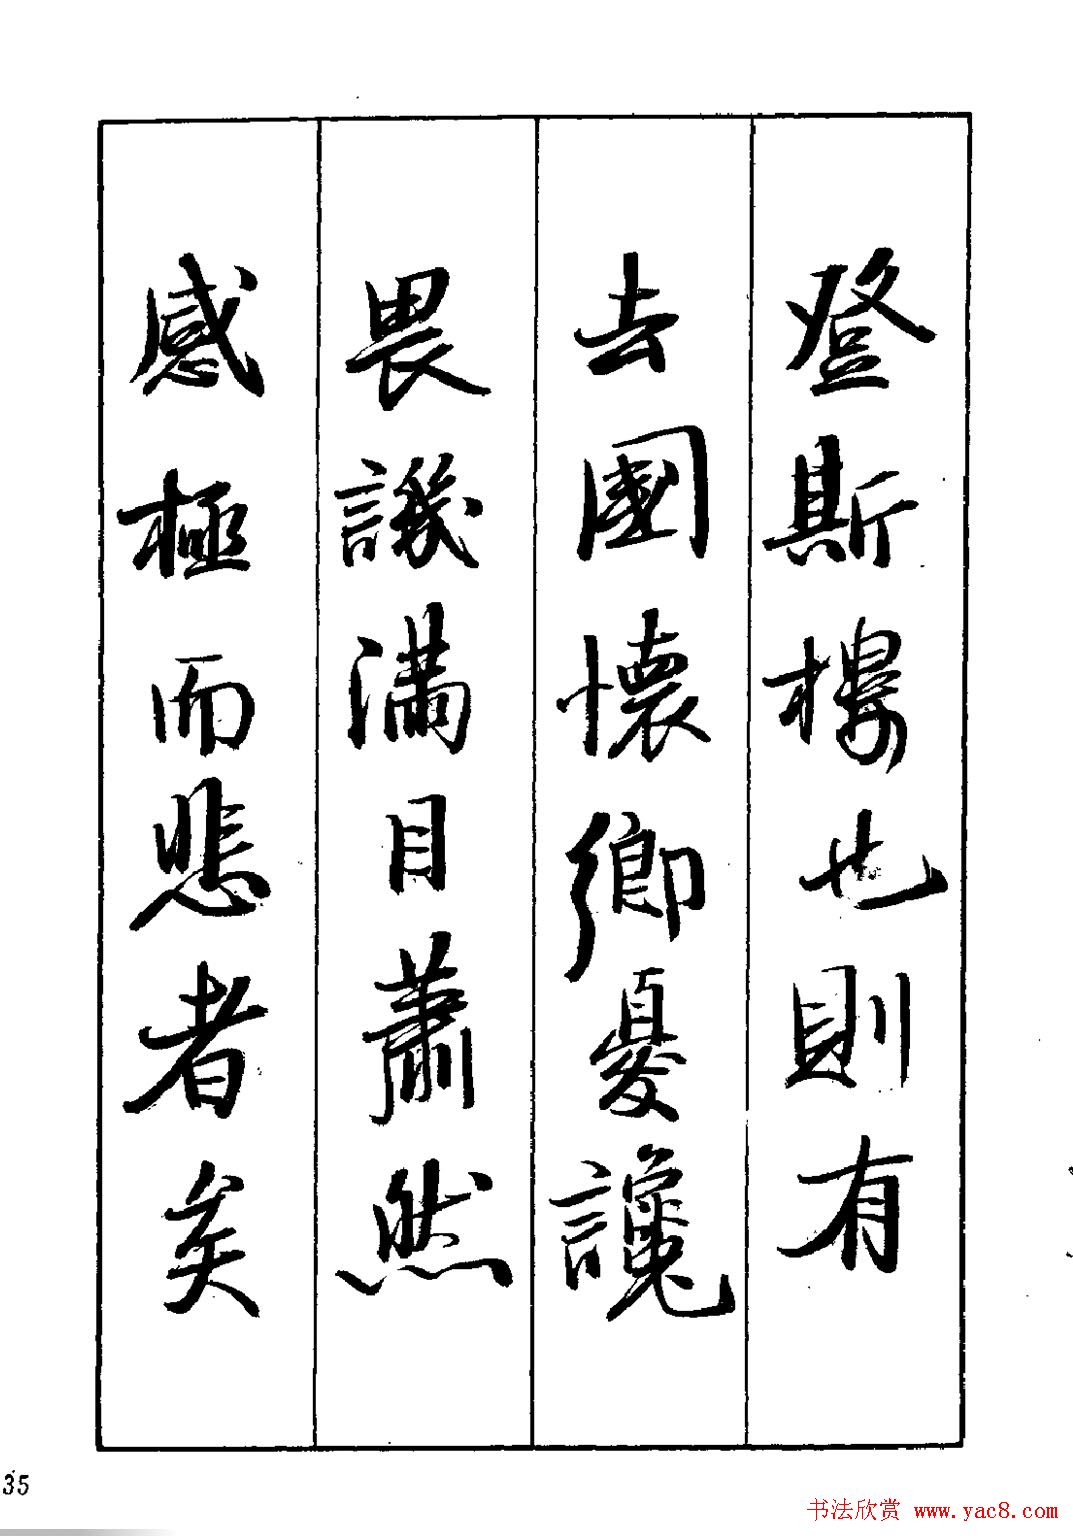 登斯樓也則有
去國懷鄉憂讒
畏譏滿目蕭然
感極而悲者矣
35
书法欣赏 www.yac8.com